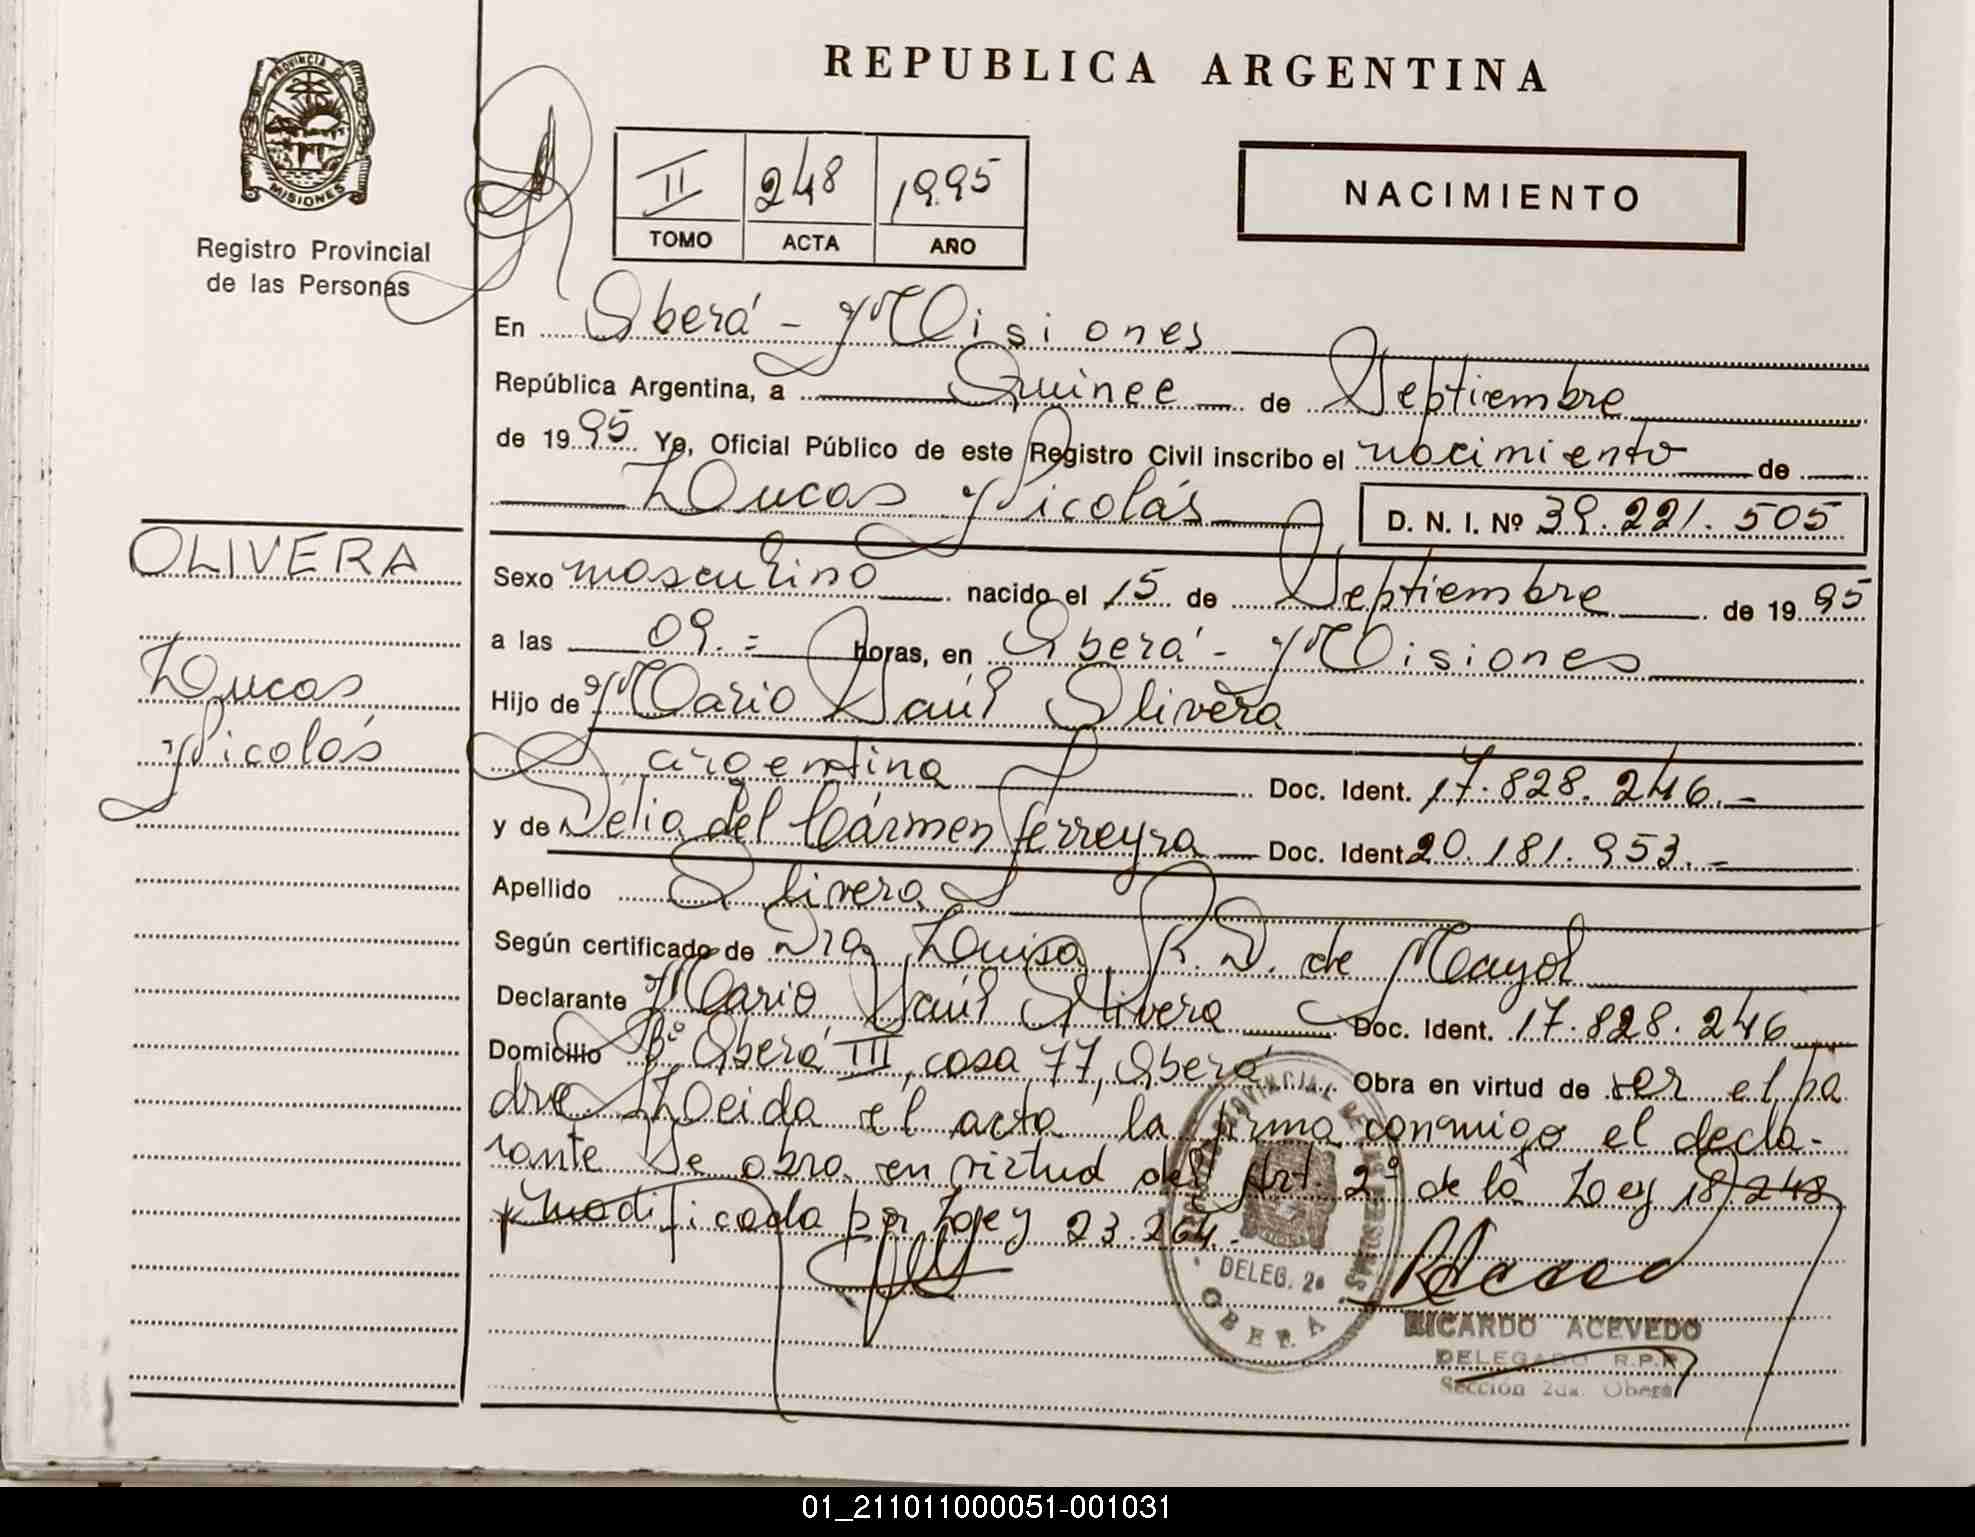 REPUBLICA ARGENTINA
PROVINCIA DE
MISIONES
Registro Provincial
de las Personas
II 248 1995
TOMO ACTA AÑO
NACIMIENTO
En Oberá - Misiones
República Argentina, a Quince de Septiembre
de 1995 Yo, Oficial Público de este Registro Civil inscribo el nacimiento de
Lucas Nicolás D. N. I. Nº 39.221.505
OLIVERA
Lucas
Nicolás
Sexo masculino nacido el 15 de Septiembre de 1995
a las 09.= horas, en Oberá - Misiones
Hijo de Mario Saúl Olivera
argentina Doc. Ident. 17.828.246.-
y de Delia del Cármen Ferreyra Doc. Ident. 20.181.953.-
Apellido Olivera
Según certificado de Dra Luisa R. D. de Mayol
Declarante Mario Saúl Olivera Doc. Ident. 17.828.246
Domicilio Bº Oberá III, casa 77, Oberá Obra en virtud de ser el pa
dre Leida el acta la firma conmigo el decla-
rante Se obra en virtud del Art. 2º de la Ley 18.248
modificada por Ley 23.264.-
PROVINCIAL DE LAS PERSONAS
DELEG. 2ª
OBERA
RICARDO ACEVEDO
DELEGADO R.P.P.
Sección 2da. Oberá
01_211011000051-001031